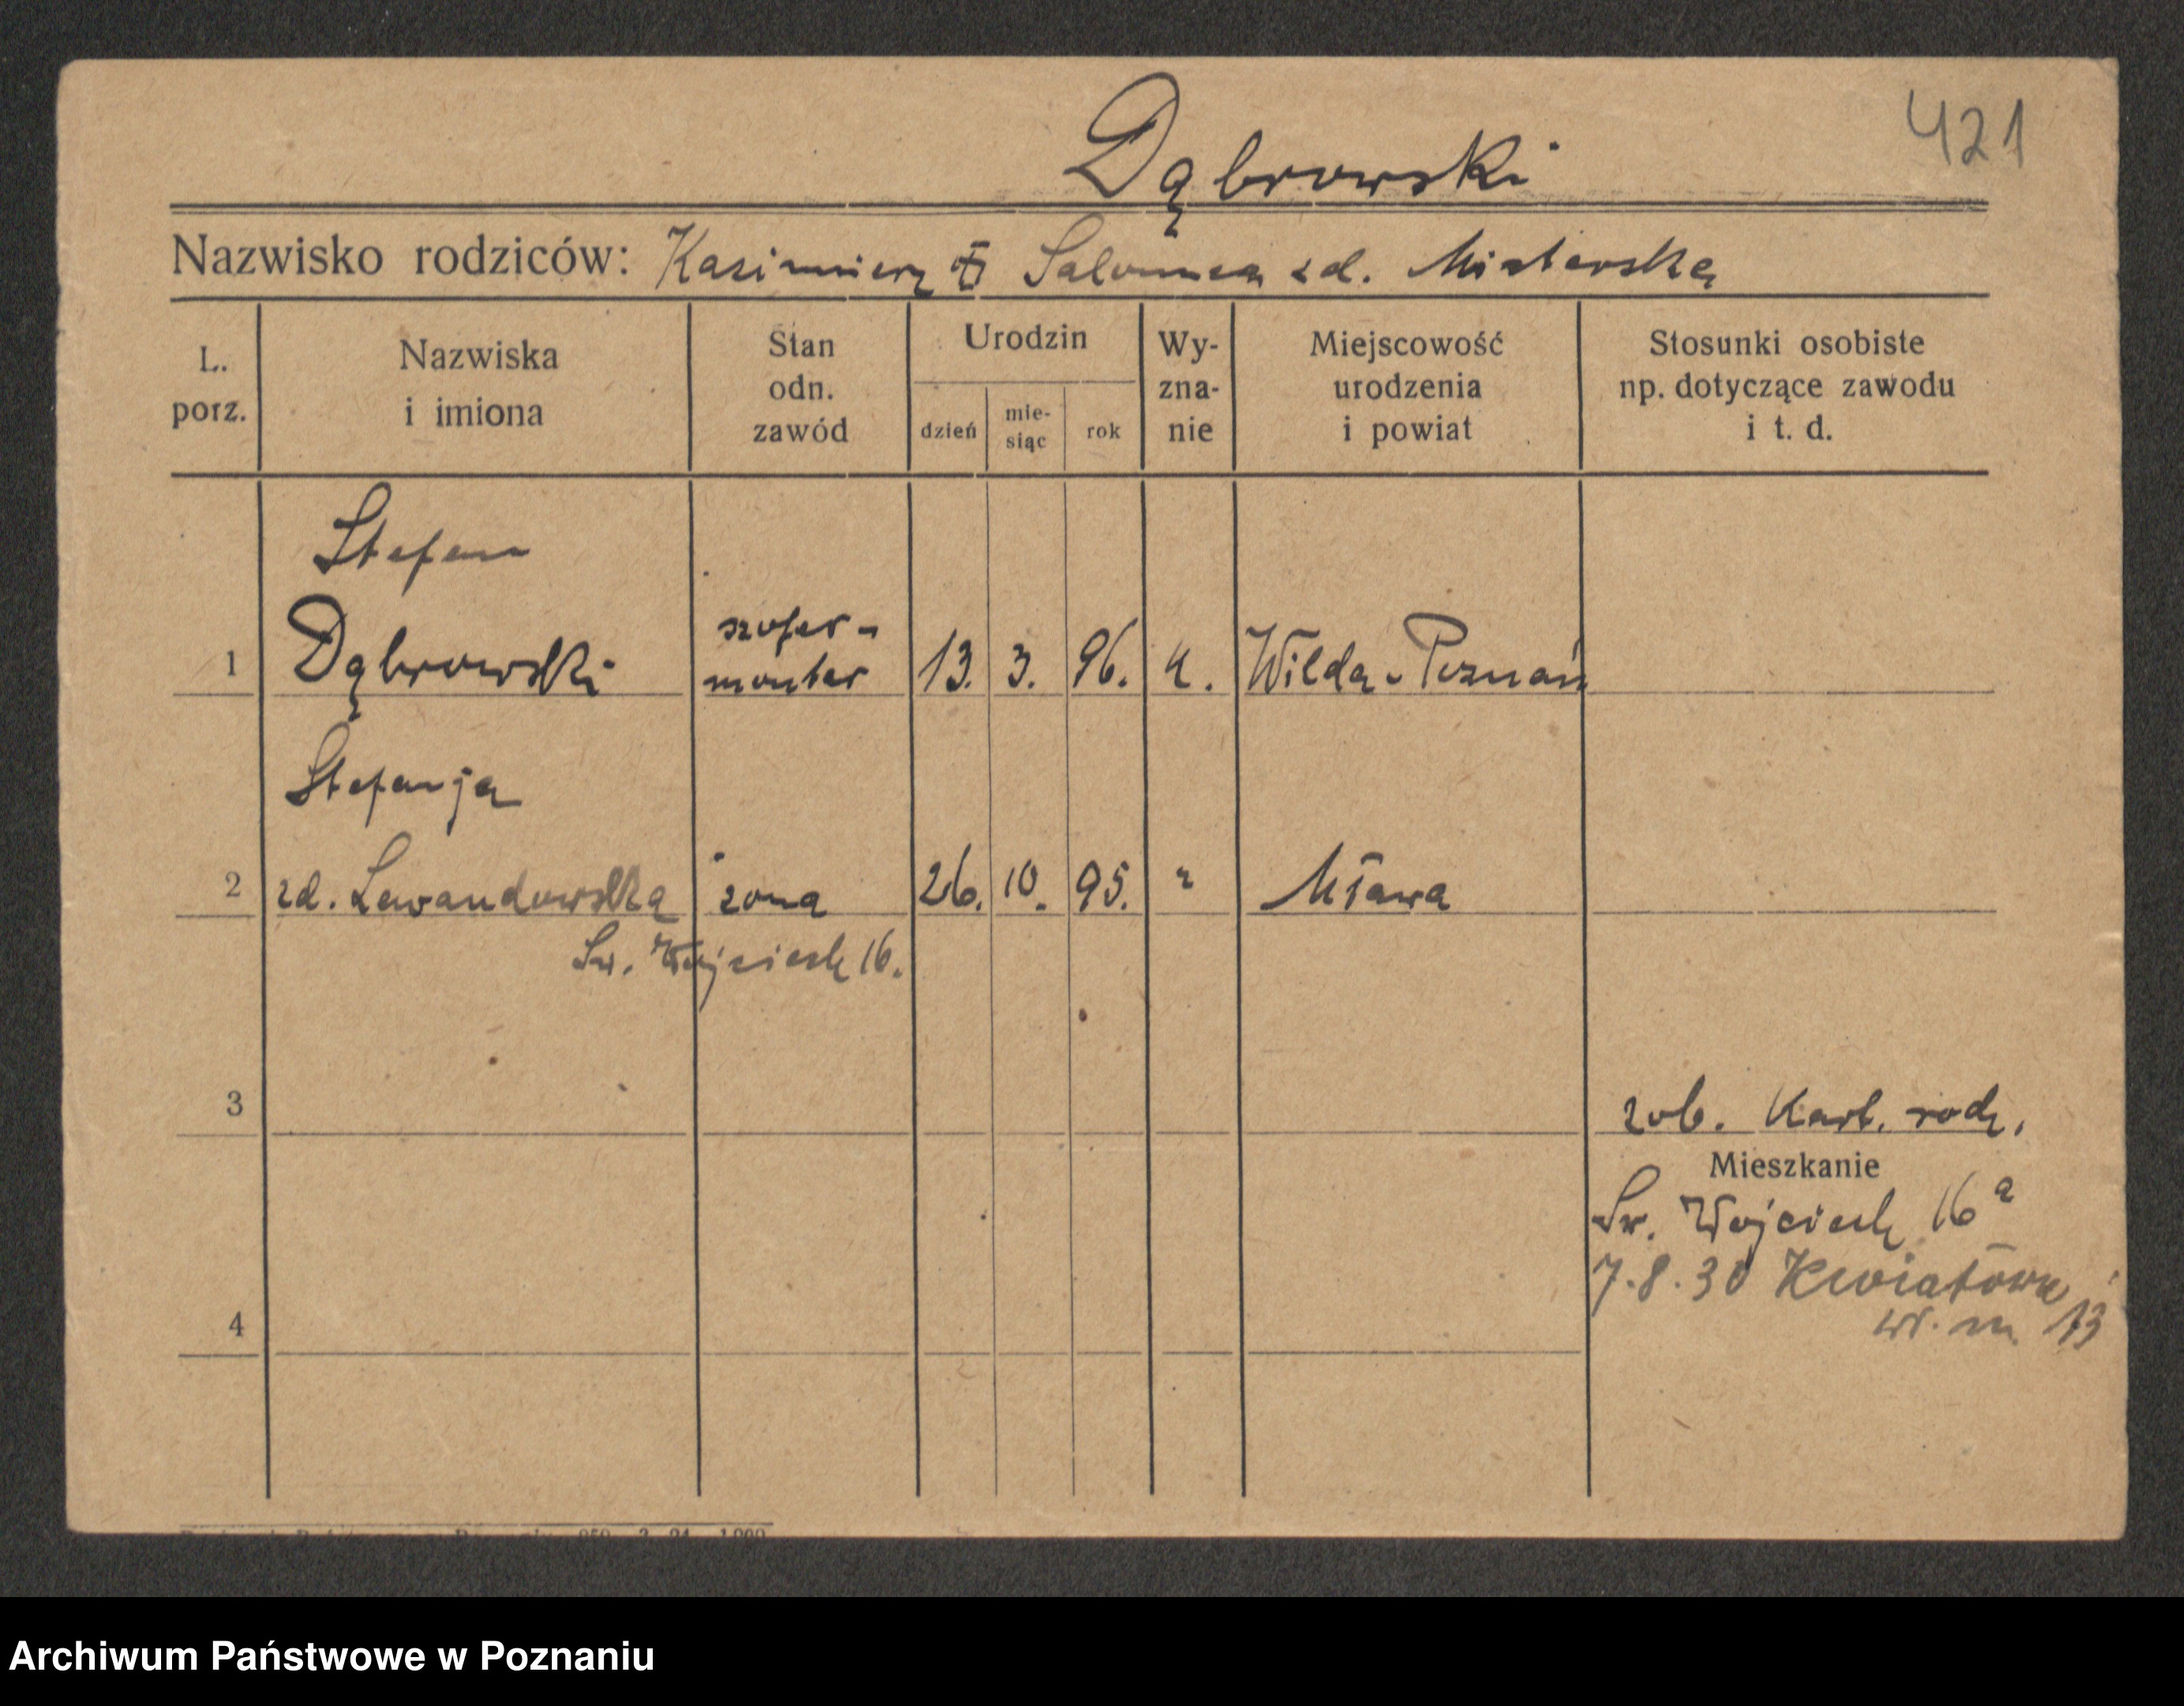 421
Dąbrowski
Nazwisko rodziców: Kazimierz Salomea zd. Misterska
L. porz.
Nazwiska i imiona
Stan odn. zawód
Urodzin
dzień
mie-siąc
rok
Wy-zna-nie
Miejscowość urodzenia i powiat
Stosunki osobiste np. dotyczące zawodu i t. d.
Stefan
1 Dąbrowski szofer - monter 13. 3. 96. k. Wilda - Poznań
Stefanja
2 zd. Lewandowska żona 26. 10. 95. " Mława
Św. Wojciech 16.
3
zob. Kart. rodz.
Mieszkanie
Św. Wojciech 16a
7.8.30 Kwiatowa
4
w. m. 13
Archiwum Państwowe w Poznaniu